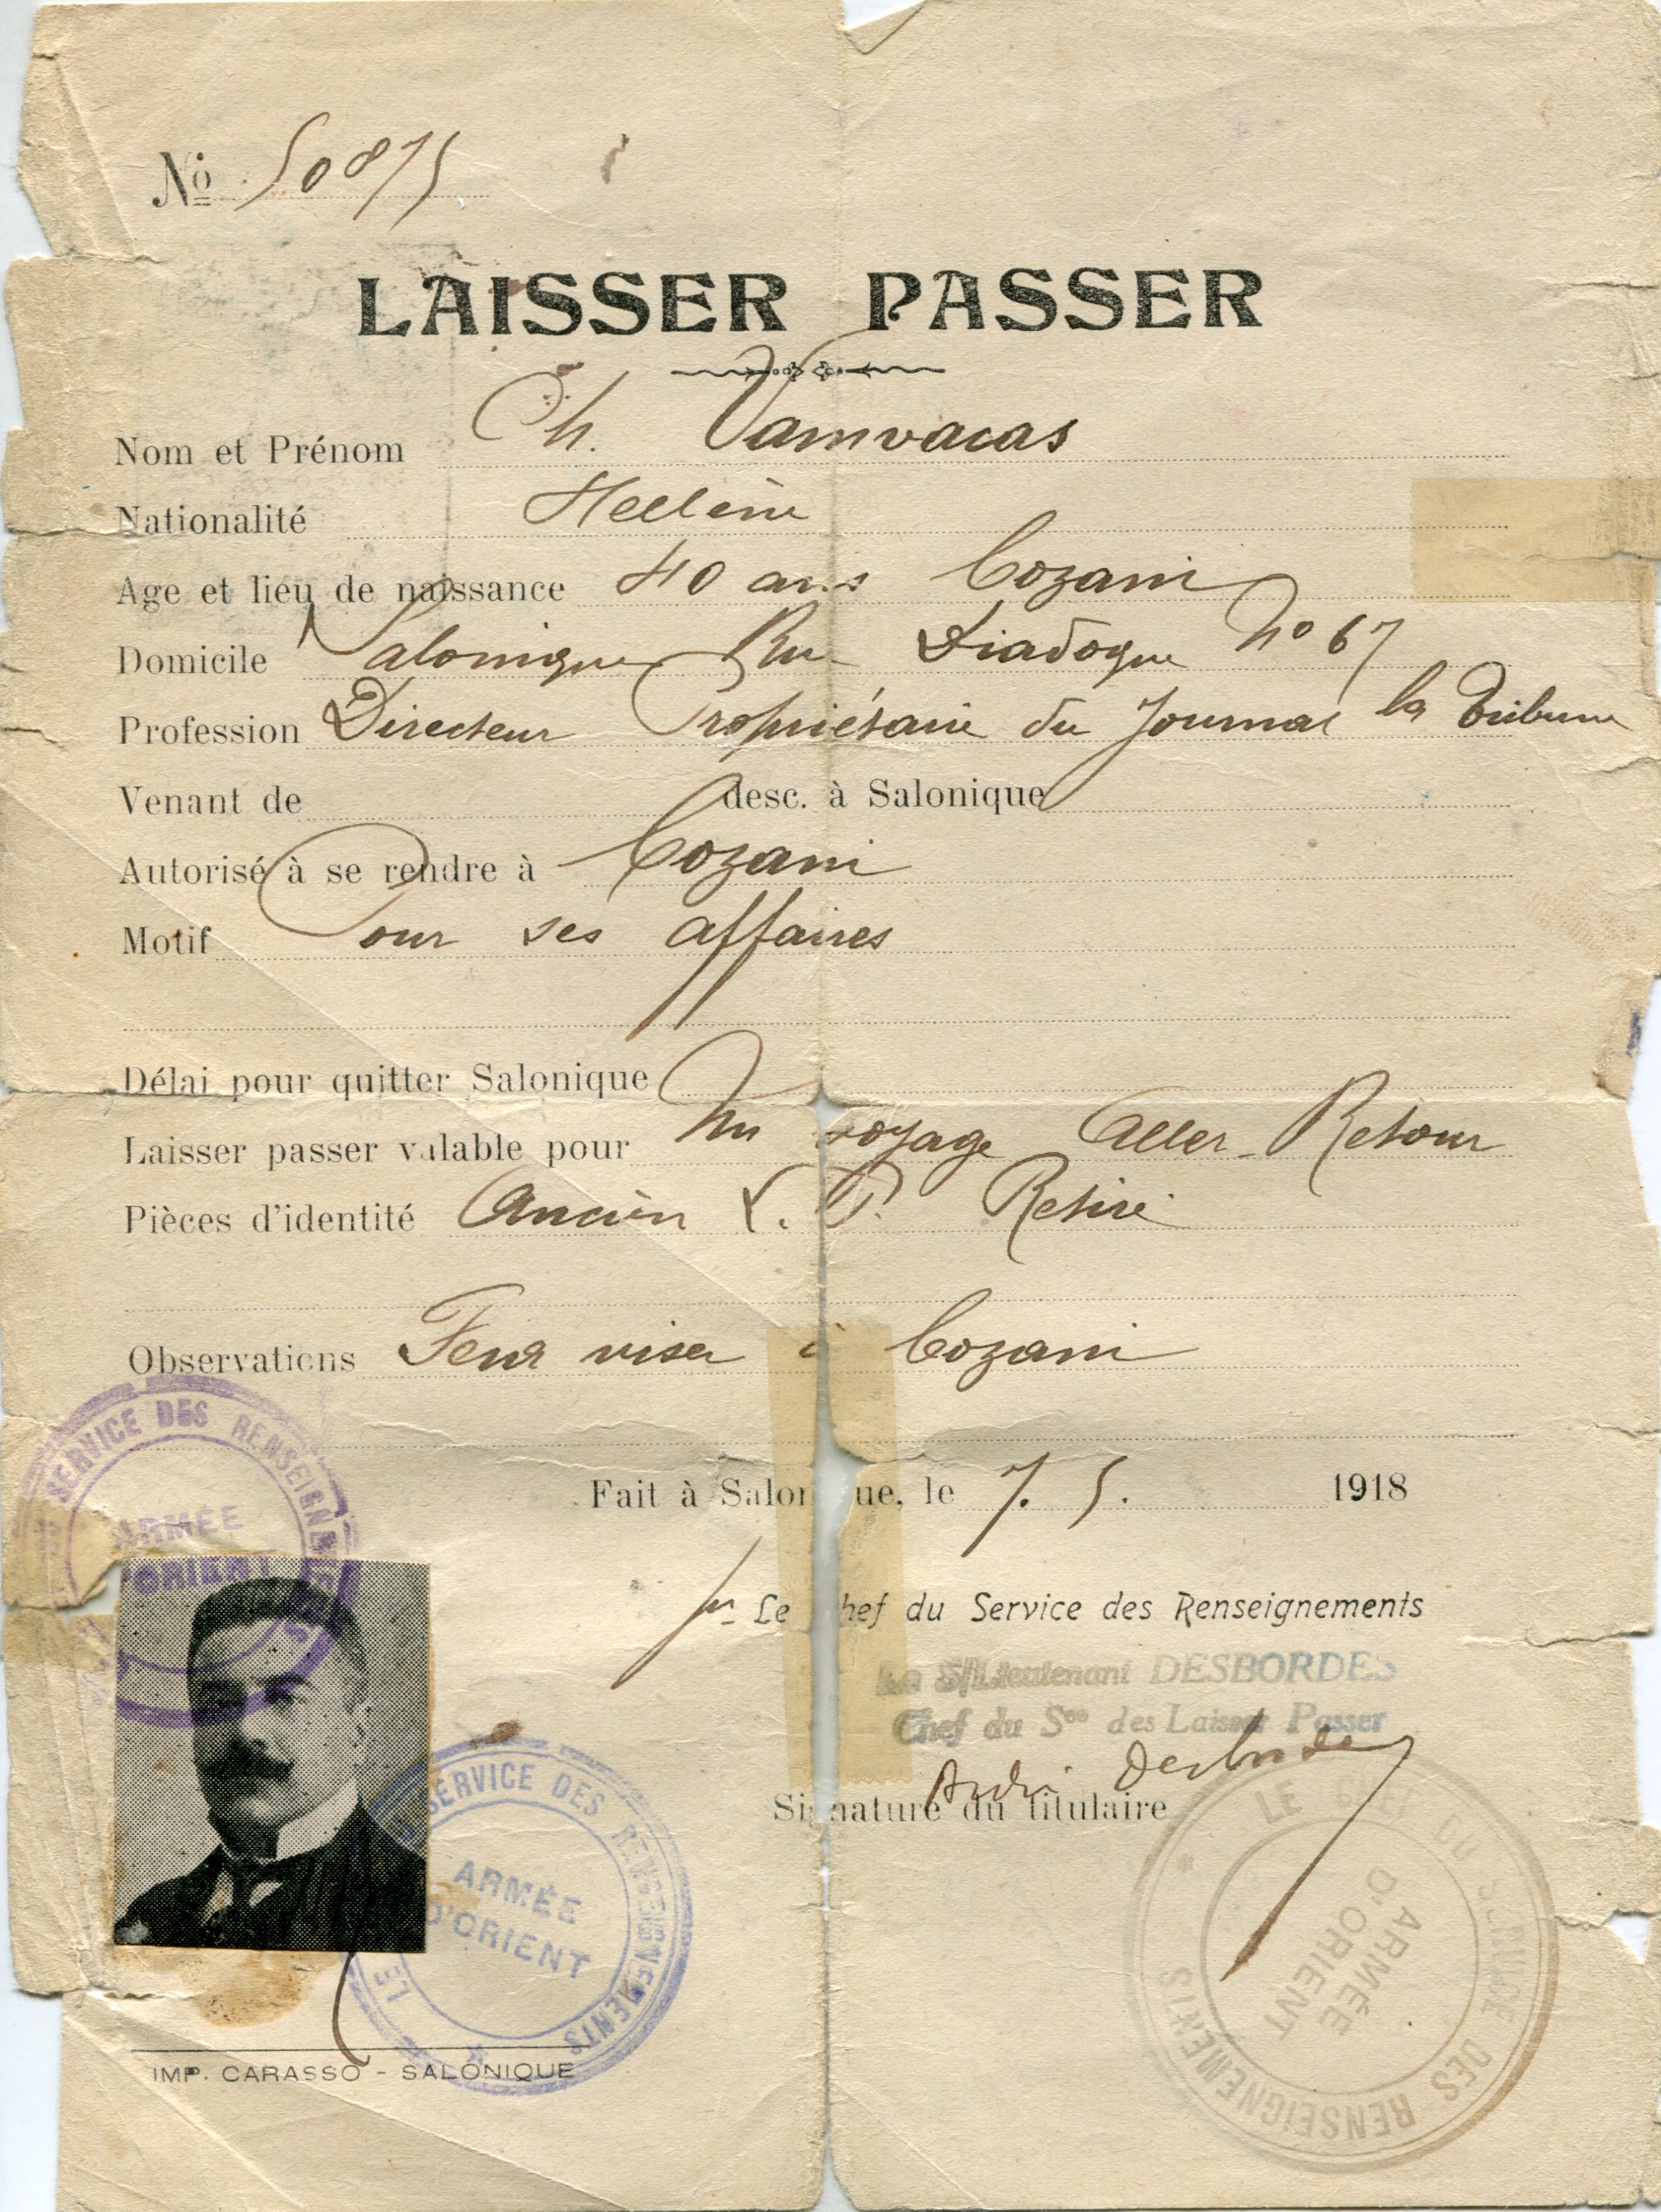 No 50875
LAISSER PASSER
Nom et Prénom Ch. Vamvacas
Nationalité Hellène
Age et lieu de naissance 40 ans Cozani
Domicile Salonique Rue Diadoque No 67
Profession Directeur Propriétaire du Journal la Tribune
Venant de desc. à Salonique
Autorisé à se rendre à Cozani
Motif Pour ses affaires
Délai pour quitter Salonique
Laisser passer valable pour Un voyage Aller-Retour
Pièces d'identité Ancien L. P. Retiré
Observations Fera viser à Cozani
Fait à Salonique, le 7. 5. 1918
Le Chef du Service des Renseignements
Le S/Lieutenant DESBORDES
Chef du Sce des Laisser Passer
André Desbordes
Signature du titulaire
SERVICE DES RENSEIGNEMENTS
ARMÉE
D'ORIENT
LE SERVICE DES RENSEIGNEMENTS
ARMÉE
D'ORIENT
LE CHEF DU SERVICE DES RENSEIGNEMENTS
ARMÉE
D'ORIENT
IMP. CARASSO - SALONIQUE